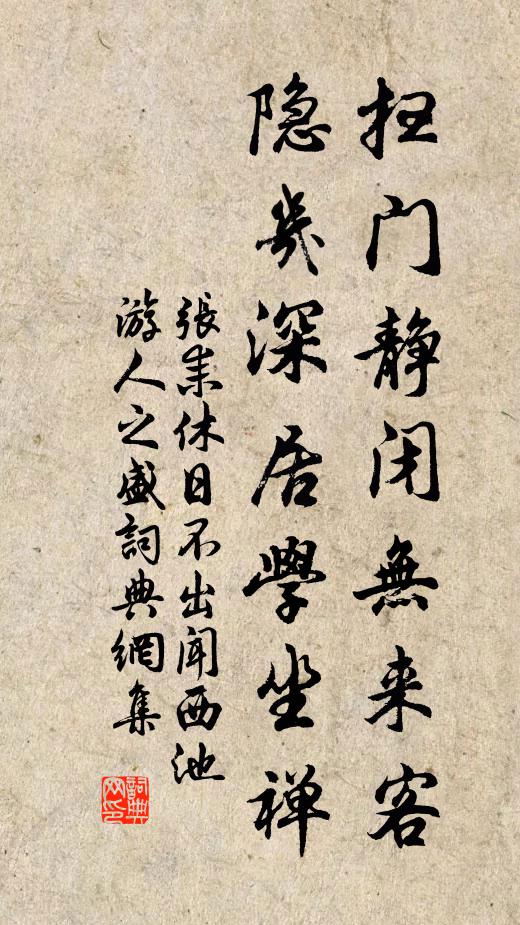 扫门静闭無来客
隐几深居學坐禅
張耒休日不出闻西池
游人之盛詞典網集
詞典
网印